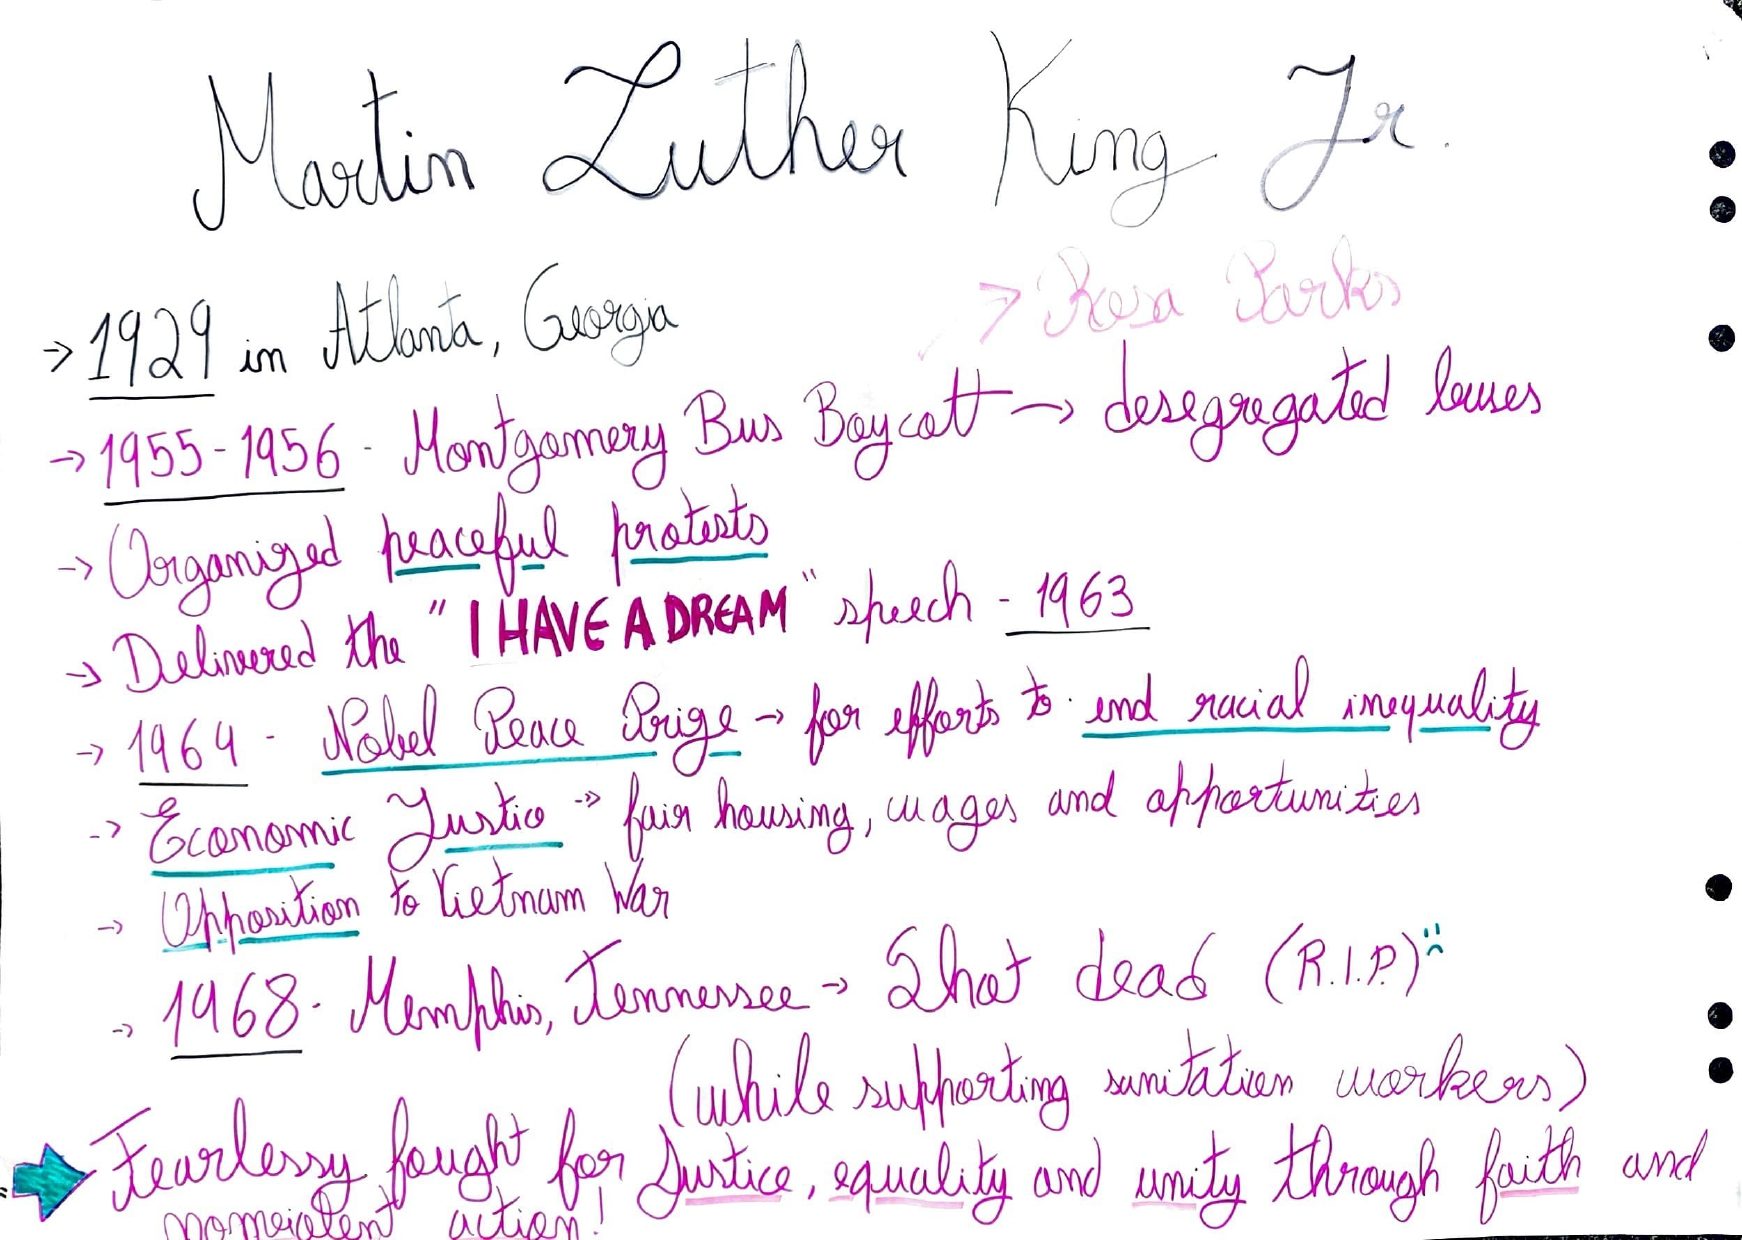 Martin Luther King Jr.
→ 1929 in Atlanta, Georgia
→ Rosa Parks
→ 1955-1956 - Montgomery Bus Boycott → desegregated buses
→ Organized peaceful protests
→ Delivered the "I HAVE A DREAM" speech - 1963
→ 1964 - Nobel Peace Prize → for efforts to end racial inequality
→ Economic Justice → fair housing, wages and opportunities
→ Opposition to Vietnam War
→ 1968 - Memphis, Tennessee → Shot dead (R.I.P.) :(
(while supporting sanitation workers)
→ Fearlessy fought for Justice, equality and unity through faith and
nonviolent action!